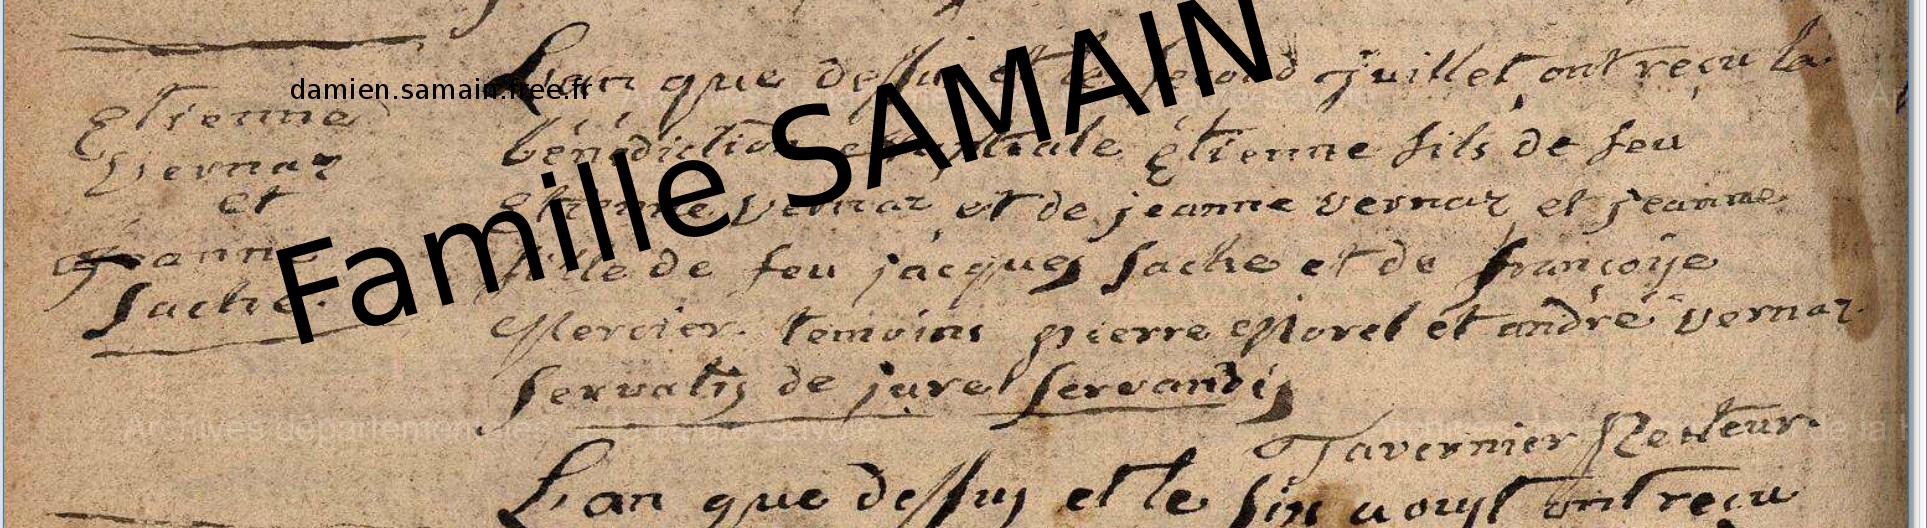 damien.samain.free.fr
Famille SAMAIN
Etienne
Vernaz
et
Jeanne
Sache.
L'an que dessus et le second juillet ont reçu la
bénédiction nuptiale Etienne fils de feu
Etienne vernaz et de jeanne vernaz et jeanne
fille de feu jacques Sache et de françoise
Mercier. temoins pierre Morel et andré vernaz
servatis de jure servandis
Tavernier Recteur.
L'an que dessus et le six aoust ont reçu
Archives départementales de la Haute-Savoie